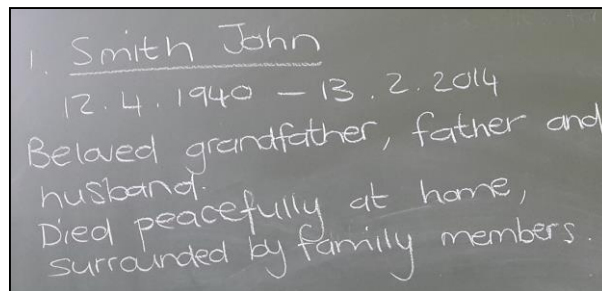 1. Smith John
12.4.1940 – 13.2.2014
Beloved grandfather, father and
husband.
Died peacefully at home,
surrounded by family members.